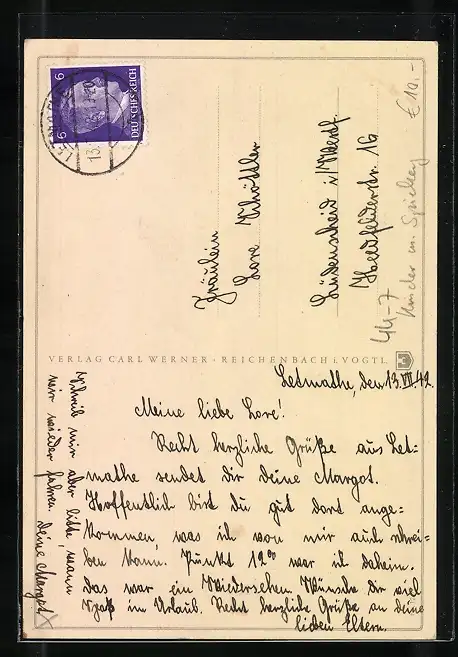 6
6
DEUTSCHES REICH
13.
€ 10.-
Fräulein
Lore
Lüdenscheid i/Westf
str. 16
44-7
Kinder m.
VERLAG CARL WERNER · REICHENBACH i. VOGTL.
Letmathe, den 13.VII 42
Meine liebe Lore!
Recht herzliche Grüße aus Let-
mathe sendet dir deine Margot.
Hoffentlich bist du gut dort ange-
kommen, was ich von mir auch schrei-
ben kann. Punkt 12⁰⁰ war ich daheim.
Das war ein Wiedersehen. Wünsche dir viel
Spaß im Urlaub. Recht herzliche Grüße an deine
lieben Eltern.
Schreib mir aber bitte, wann
wir wieder fahren. Deine Margot